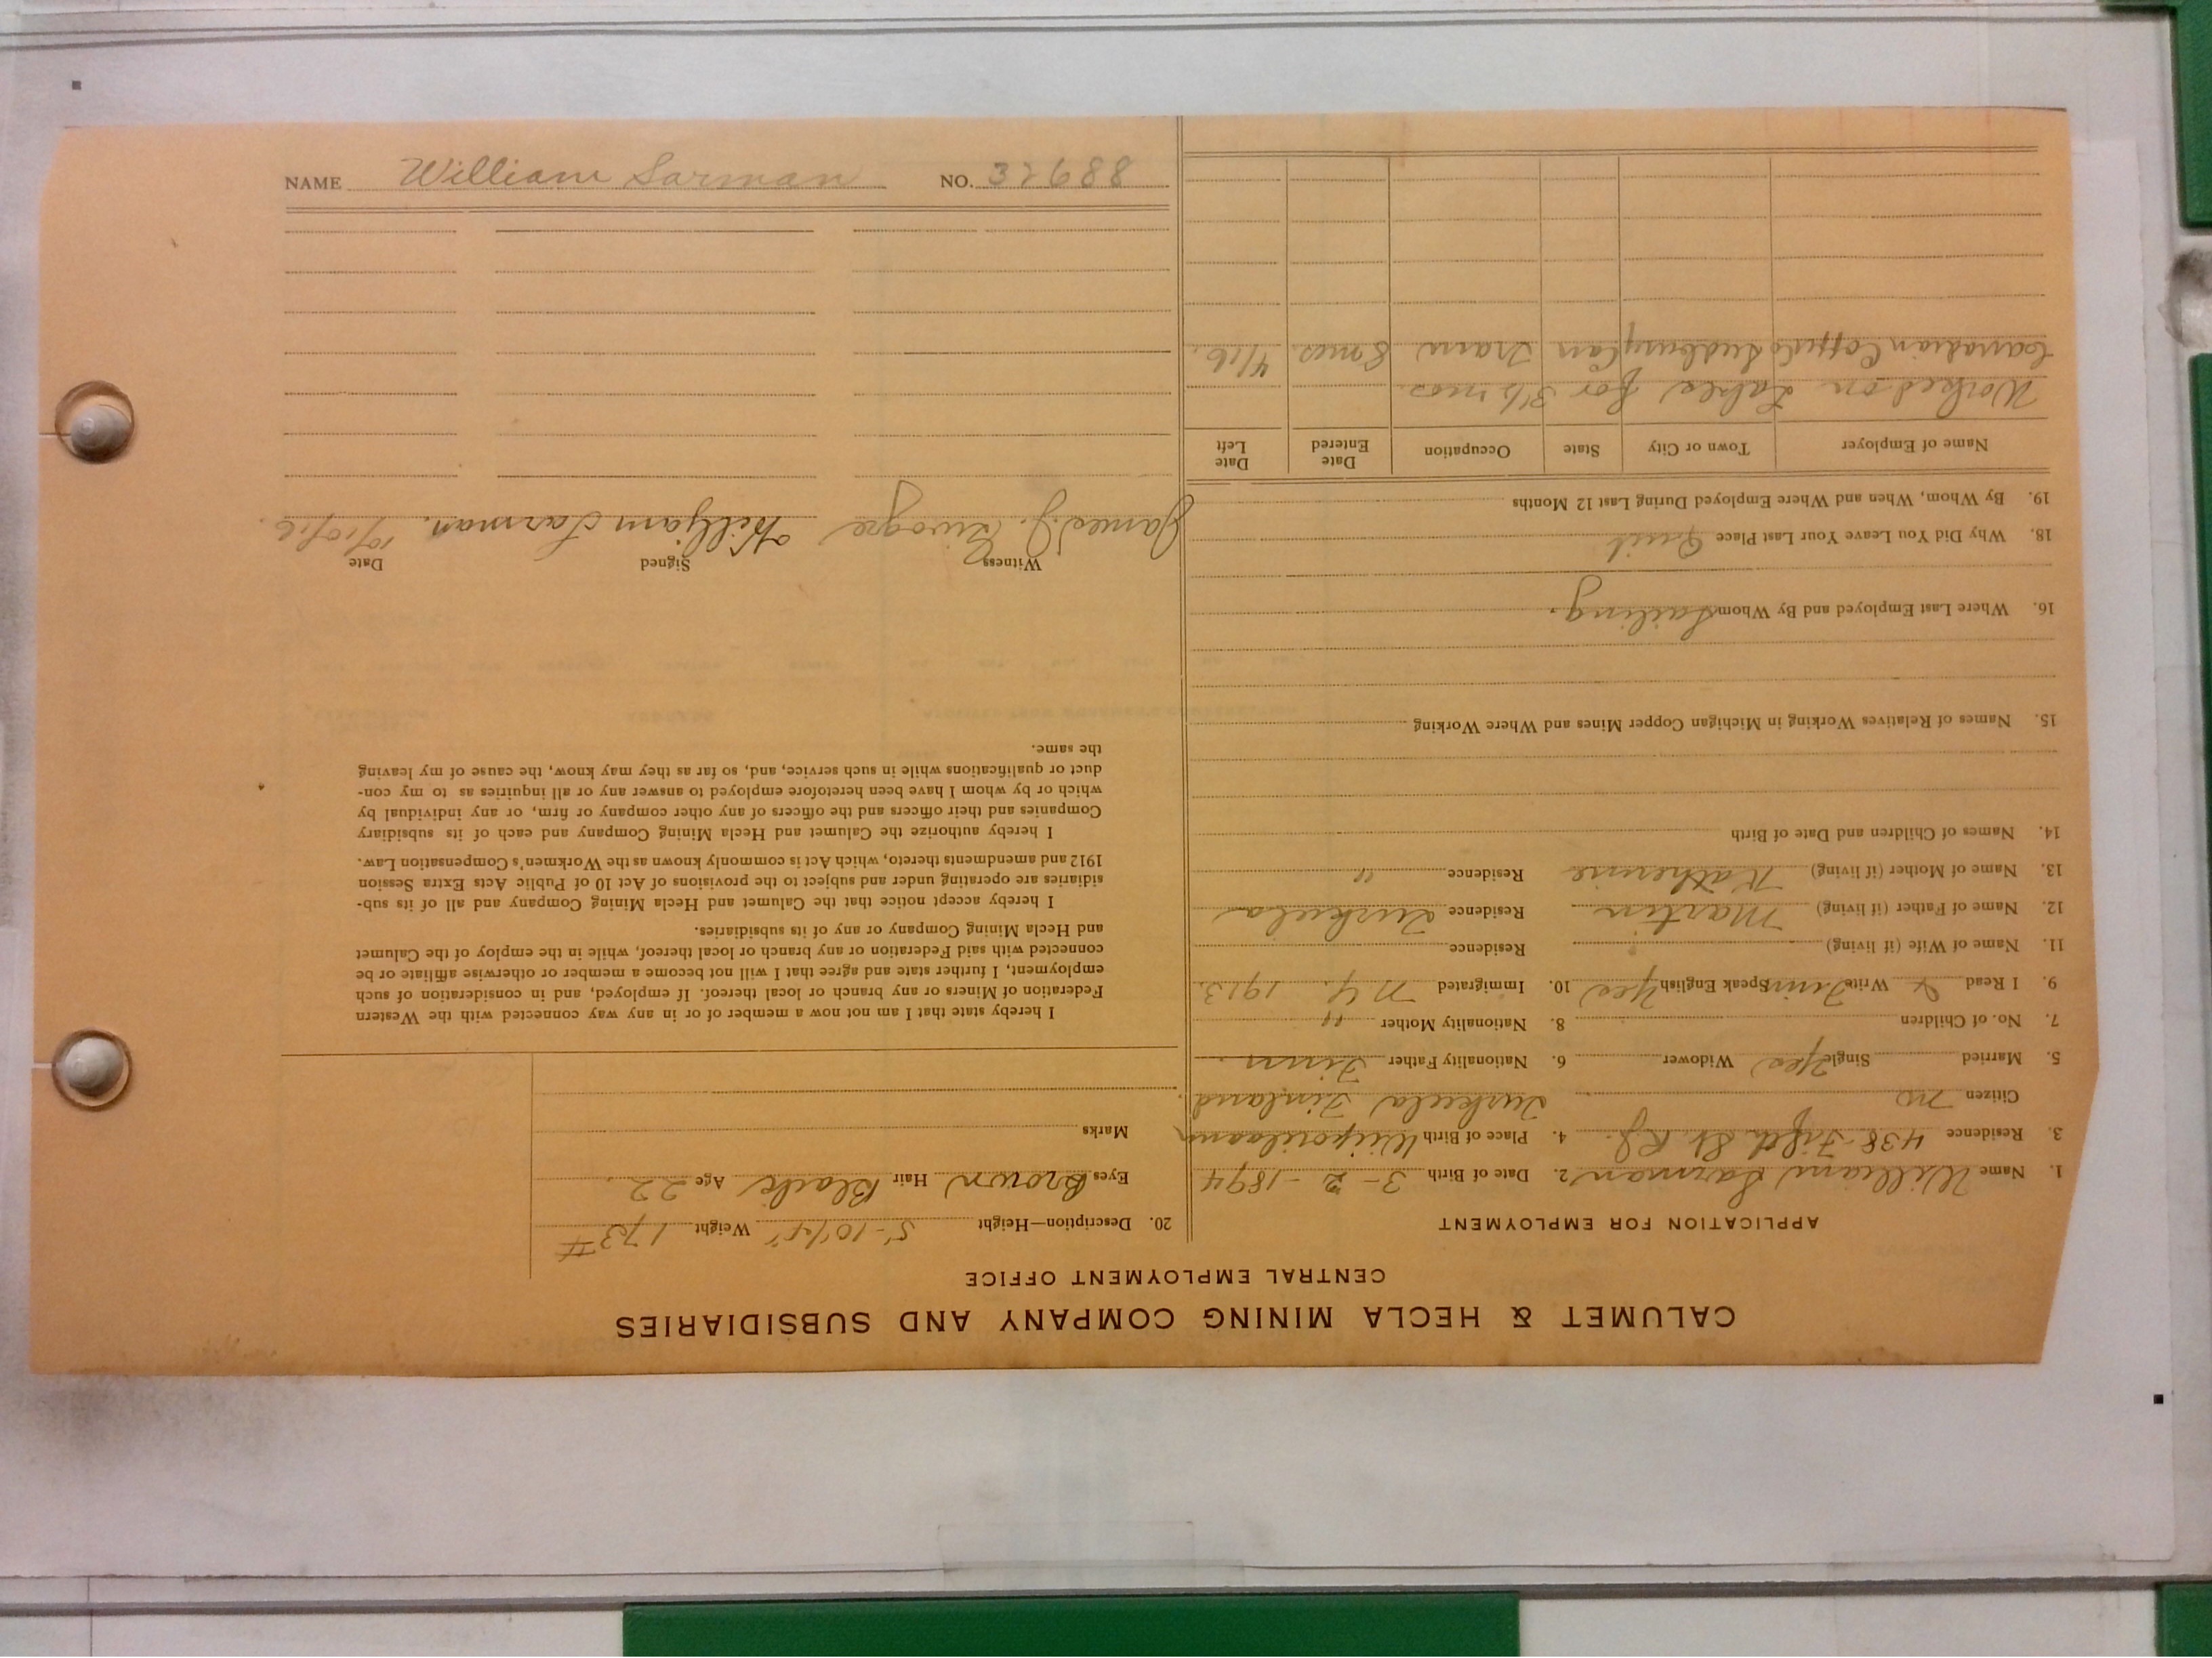 CALUMET & HECLA MINING COMPANY AND SUBSIDIARIES
CENTRAL EMPLOYMENT OFFICE
APPLICATION FOR EMPLOYMENT
1. Name William Sarman 2. Date of Birth 3-2-1894
3. Residence 438-Fifth St. RJ. 4. Place of Birth
Citizen no Finland
5. Married Single Yes Widower 6. Nationality Father Finn
7. No. of Children 8. Nationality Mother "
9. I Read & Write Finn Speak English Yes 10. Immigrated N.Y. 1913.
11. Name of Wife (if living) Residence
12. Name of Father (if living) Martin Residence
13. Name of Mother (if living) Katherine Residence "
14. Names of Children and Date of Birth
15. Names of Relatives Working in Michigan Copper Mines and Where Working
16. Where Last Employed and By Whom Sailing.
18. Why Did You Leave Your Last Place Quit
19. By Whom, When and Where Employed During Last 12 Months
Name of Employer Town or City State Occupation Date Entered Date Left
Worked on Lakes for 3½ mos.
Canadian Copper Co Sudbury Can Tram 8 mos. 4/16.
20. Description—Height 5'-10¼" Weight 173#
Eyes Brown Hair Black Age 22.
Marks
I hereby state that I am not now a member of or in any way connected with the Western
Federation of Miners or any branch or local thereof. If employed, and in consideration of such
employment, I further state and agree that I will not become a member or otherwise affiliate or be
connected with said Federation or any branch or local thereof, while in the employ of the Calumet
and Hecla Mining Company or any of its subsidiaries.
I hereby accept notice that the Calumet and Hecla Mining Company and all of its sub-
sidiaries are operating under and subject to the provisions of Act 10 of Public Acts Extra Session
1912 and amendments thereto, which Act is commonly known as the Workmen's Compensation Law.
I hereby authorize the Calumet and Hecla Mining Company and each of its subsidiary
Companies and their officers and the officers of any other company or firm, or any individual by
which or by whom I have been heretofore employed to answer any or all inquiries as to my con-
duct or qualifications while in such service, and, so far as they may know, the cause of my leaving
the same.
Witness Signed Date
James J. Willjam Sarman. 7/10/16.
NAME William Sarman NO. 32688